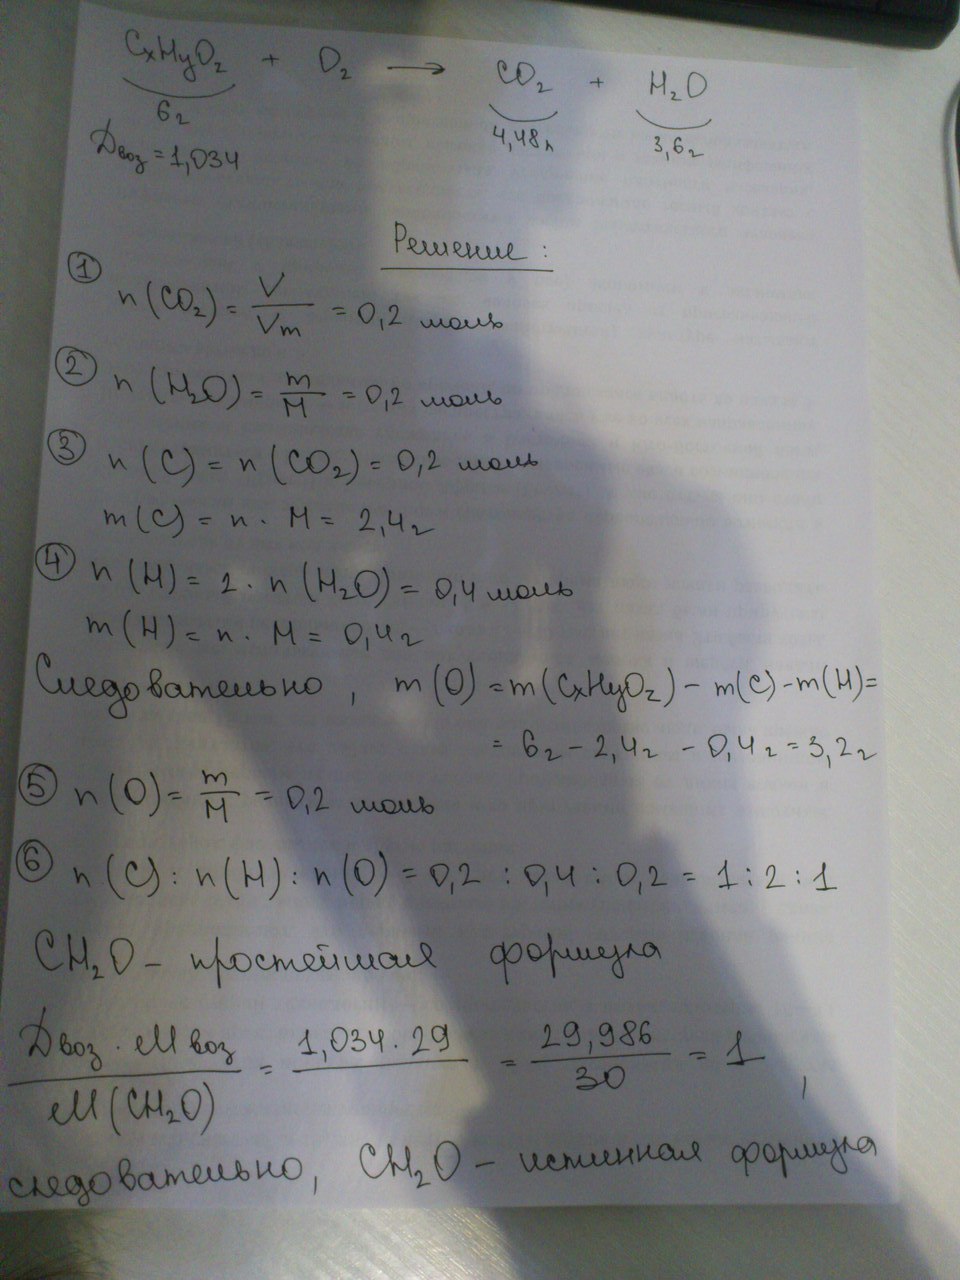 CxHyOz + O₂ → CO₂ + H₂O
6г 4,48л 3,6г
Dвоз = 1,034
Решение:
① n(CO₂) = V/Vm = 0,2 моль
② n(H₂O) = m/M = 0,2 моль
③ n(C) = n(CO₂) = 0,2 моль
m(C) = n · M = 2,4г
④ n(H) = 2 · n(H₂O) = 0,4 моль
m(H) = n · M = 0,4г
Следовательно, m(O) = m(CxHyOz) - m(C) - m(H) =
= 6г - 2,4г - 0,4г = 3,2г
⑤ n(O) = m/M = 0,2 моль
⑥ n(C) : n(H) : n(O) = 0,2 : 0,4 : 0,2 = 1 : 2 : 1
CH₂O - простейшая формула
Dвоз · Mвоз / M(CH₂O) = 1,034 · 29 / = 29,986 / 30 = 1,
следовательно, CH₂O - истинная формула